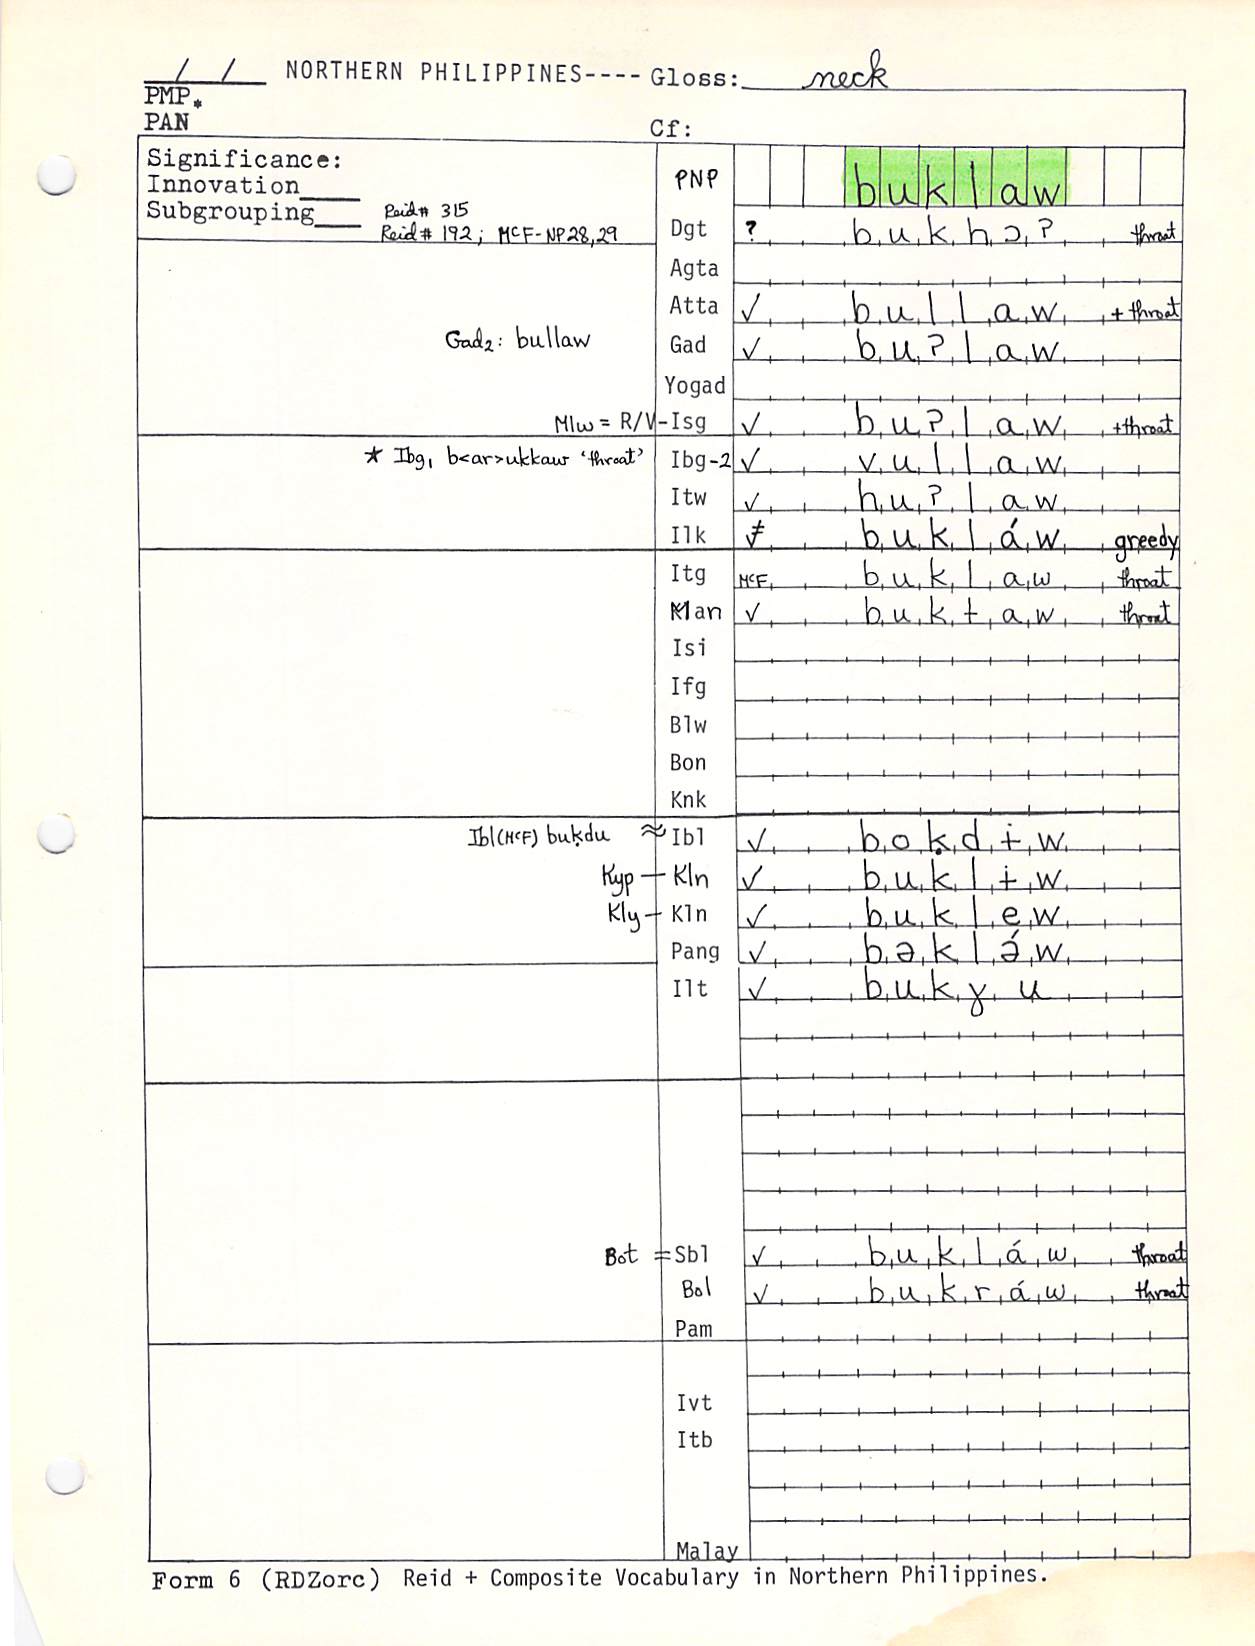 / / NORTHERN PHILIPPINES---- Gloss: neck
PMP*
PAN Cf:
Significance:
Innovation___
Subgrouping___ Reid# 315
Reid# 192; McF-NP28,29
PNP buklaw
Dgt ? bukhɔʔ throat
Agta
Atta ✓ bullaw + throat
Gad2: bullaw Gad ✓ buʔlaw
Yogad
Mlw = R/V-Isg ✓ buʔlaw +throat
* Ibg1 b<ar>ukkaw 'throat' Ibg-2 ✓ vullaw
Itw ✓ huʔlaw
Ilk ≠ bukláw greedy
Itg McF buklaw throat
Man ✓ bukław throat
Isi
Ifg
Blw
Bon
Knk
Ibl(McF) buḳdu ≈ Ibl ✓ boḳdɨw
Kyp — Kln ✓ buklɨw
Kly — Kln ✓ buklew
Pang ✓ bəklə́w
Ilt ✓ bukɣu
Bot = Sbl ✓ bukláw throat
Bol ✓ bukráw throat
Pam
Ivt
Itb
Malay
Form 6 (RDZorc) Reid + Composite Vocabulary in Northern Philippines.